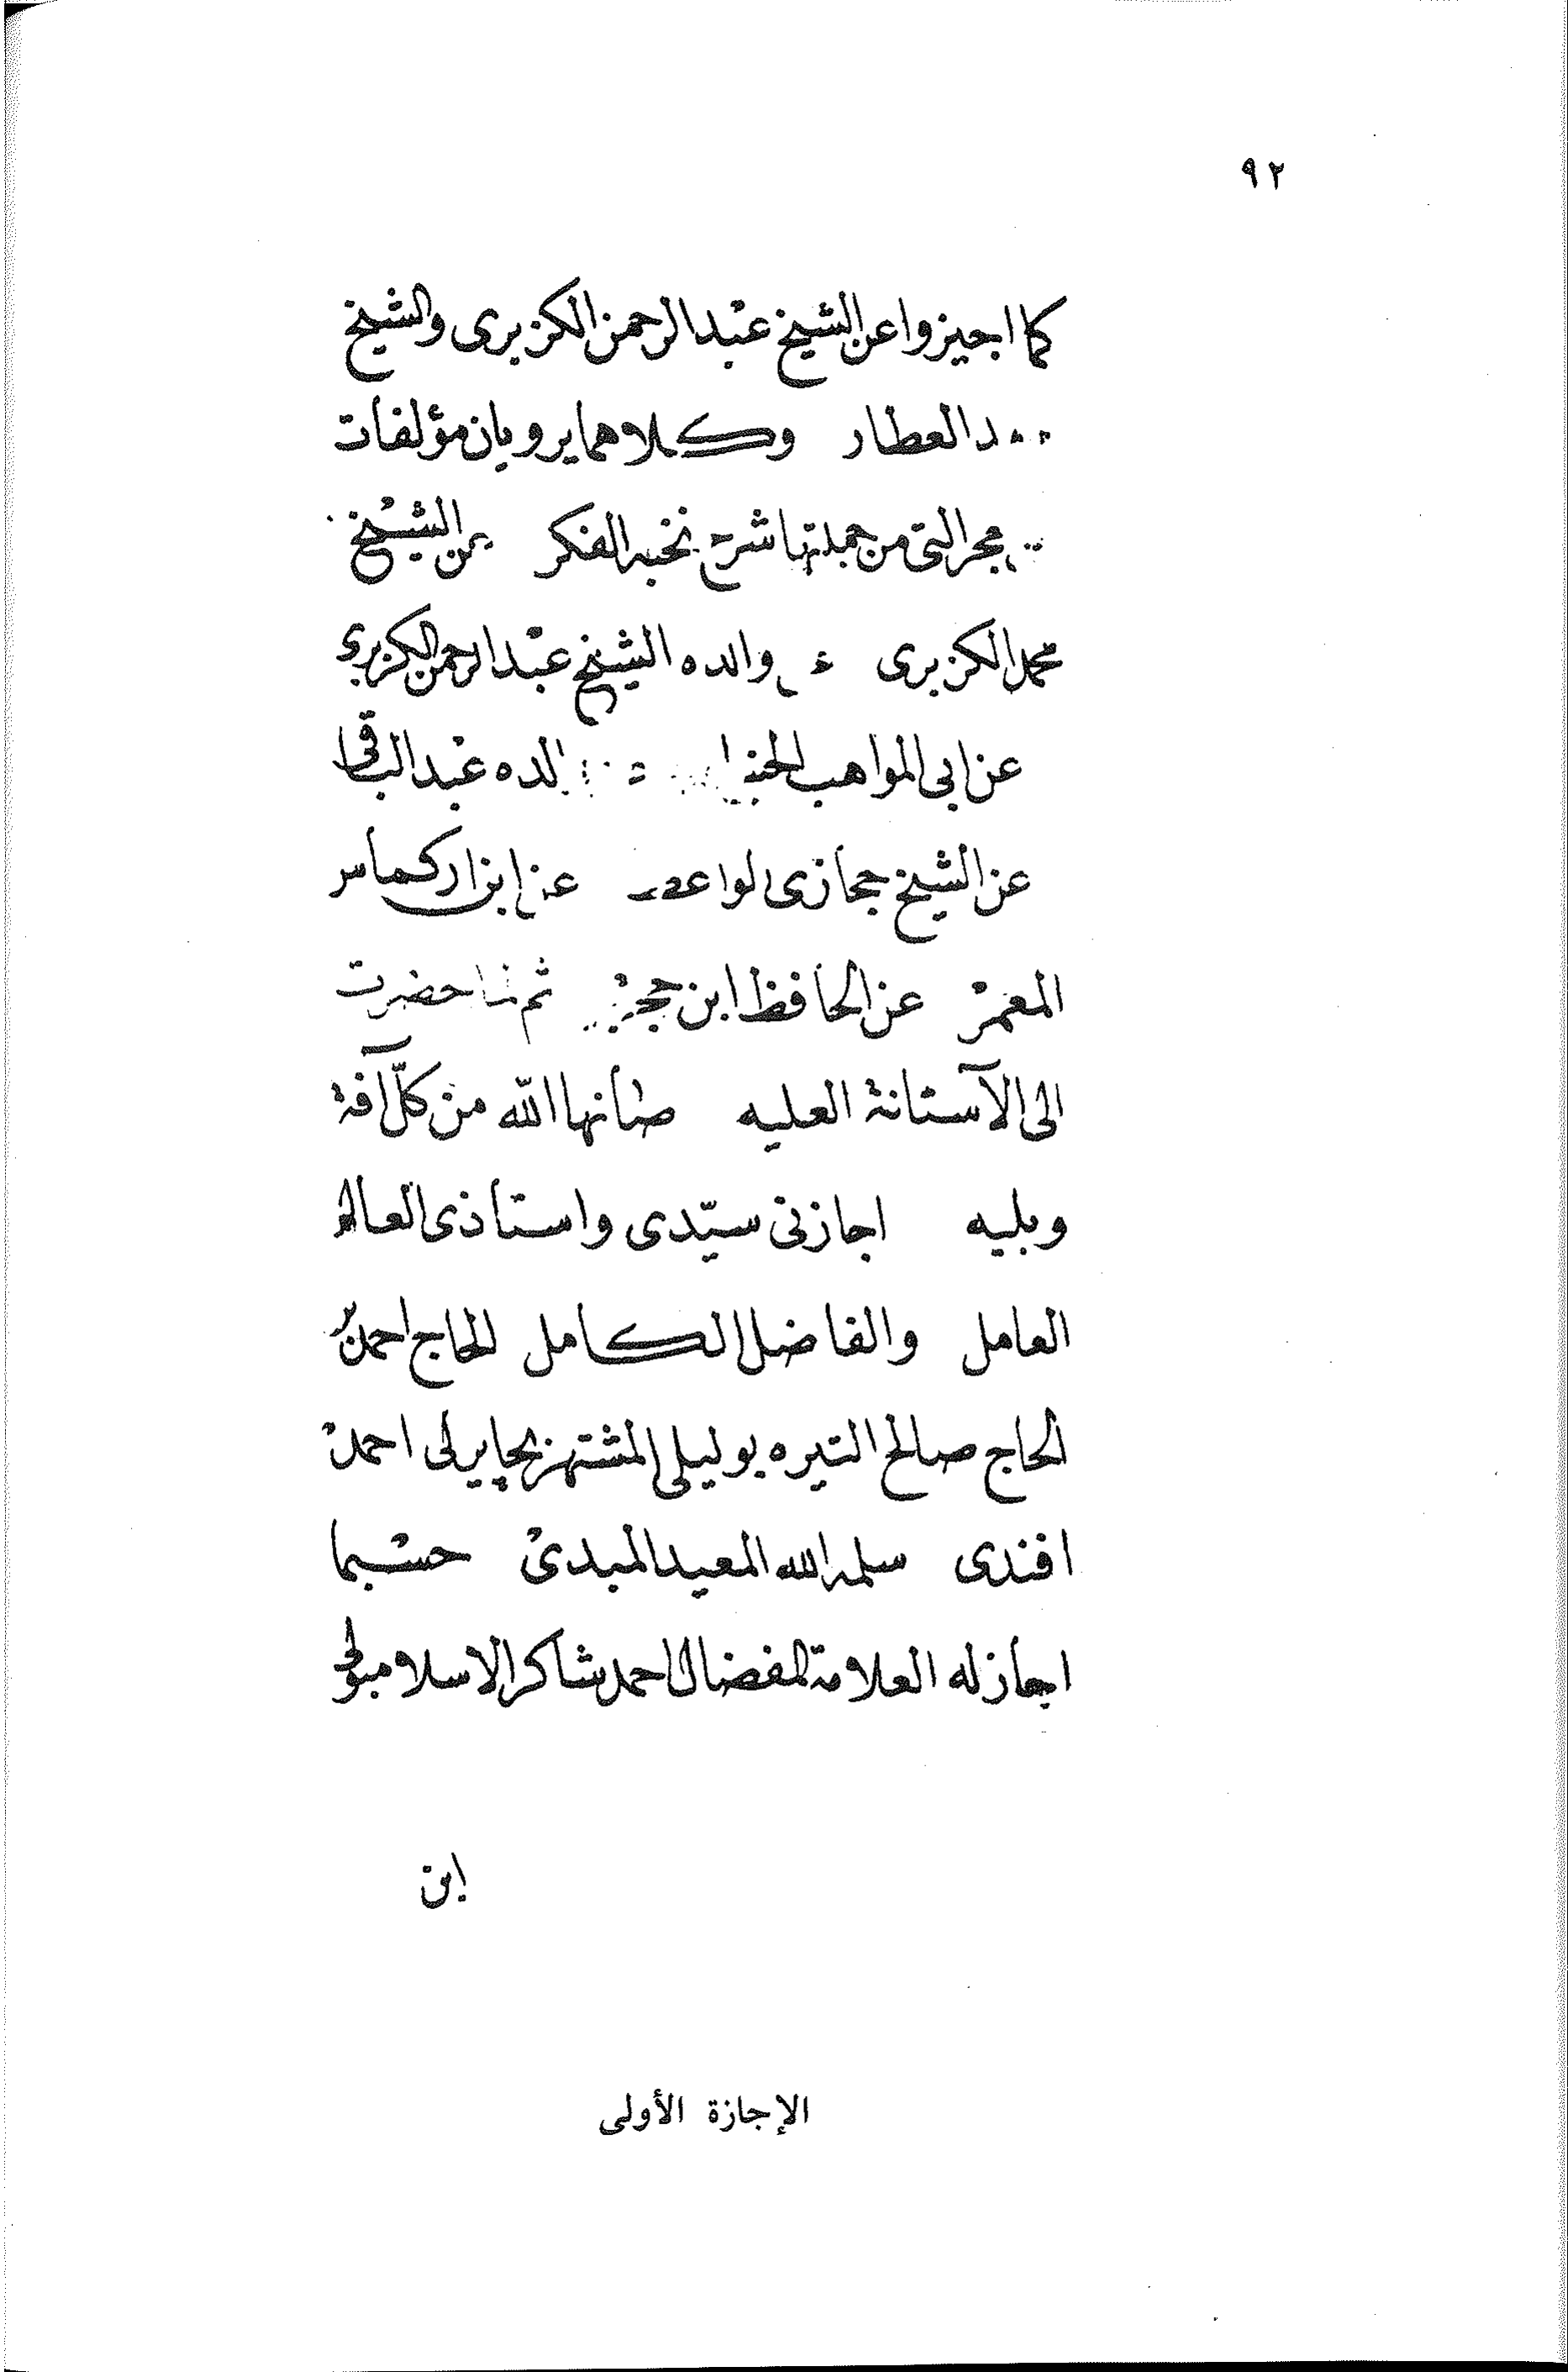 ٩٢
كما اجيزوا عن الشيخ عبد الرحمن الكزبرى والشيخ
العطار وكلاهما يرويان مؤلفات
حجر التى من جملتها شرح نخبه الفكر عن الشيخ
محمد الكزبرى عن والده الشيخ عبد الرحمن الكزبرى
عن ابى المواهب والده عبد الباقى
عن الشيخ حجازى الواعظ عن ابن اركماس
المعمر عن الحافظ ابن حجر ثم حضرت
الى الآستانة العليه صانها الله من كلّ آفة
وبليه اجازنى سيّدى واستاذى العالم
العامل والفاضل الكامل الحاج احمد بن
الحاج صالح التيره بوليلى المشتهر بچايرلى احمد
افندى سلمه الله المعيد المبدئ حسبما
اجاز له العلامة المفضال احمد شاكر الاسلامبولى
ابن
الإجازة الأولى